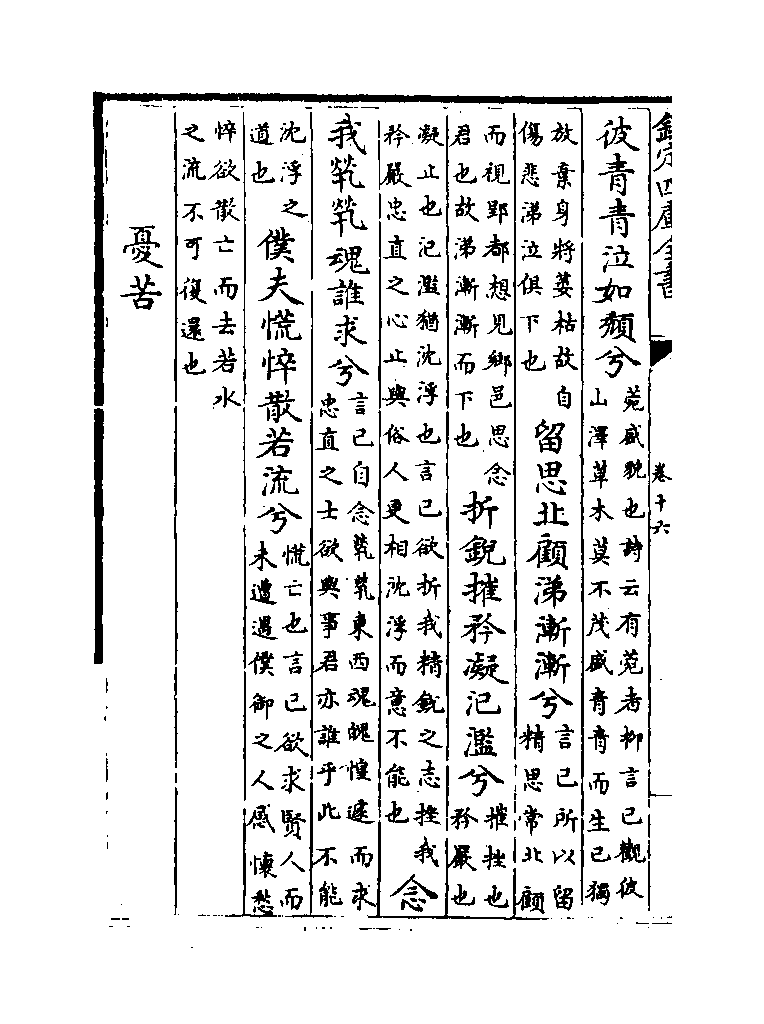 欽定四庫全書
卷十六
彼青青泣如頹兮菀盛貌也詩云有菀者柳言己觀彼山澤草木莫不茂盛青青而生己獨
放棄身將萎枯故自傷悲涕泣俱下也留思北顧涕漸漸兮言己所以留精思常北顧
而視郢都想見鄉邑思念君也故涕漸漸而下也折銳摧矜凝氾濫兮摧挫也矜嚴也
凝止也氾濫猶沈浮也言己欲折我精銳之志挫我矜嚴忠直之心止與俗人更相沈浮而意不能也念
我煢煢魂誰求兮言己自念煢煢東西魂魄惶遽而求忠直之士欲與事君亦誰乎此不能
沈浮之道也僕夫慌悴散若流兮慌亡也言己欲求賢人而未遭遇僕御之人感懷愁
悴欲散亡而去若水之流不可復還也
憂苦